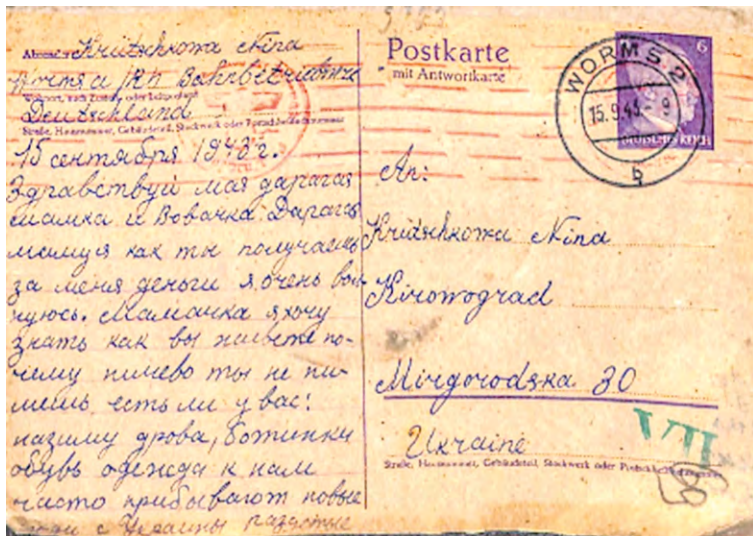 Krütschkowa Nina
Deutschland
Straße, Hausnummer, Gebäudeteil, Stockwerk oder Postschließfachnummer
15 сентября 1943 г.
Здравствуй мая дарагая
мамка и Вовачка. Дарагая
мамуся как ты получаешь
за меня деньги я очень вол-
нуюсь. Мамачка я хочу
знать как вы живете по-
чему ничево ты не пи-
шешь есть ли у вас:
назиму дрова, ботинки
обувь одежда к нам
часто прибывают новые
люди с Украины
Postkarte
mit Antwortkarte
6
DEUTSCHES REICH
WORMS 2
15.9.43 - 9
b
An:
Krütschkowa Nina
Kirowograd
Mirgorodska 30
Ukraine
Straße, Hausnummer, Gebäudeteil, Stockwerk oder Postschließfachnummer
VII